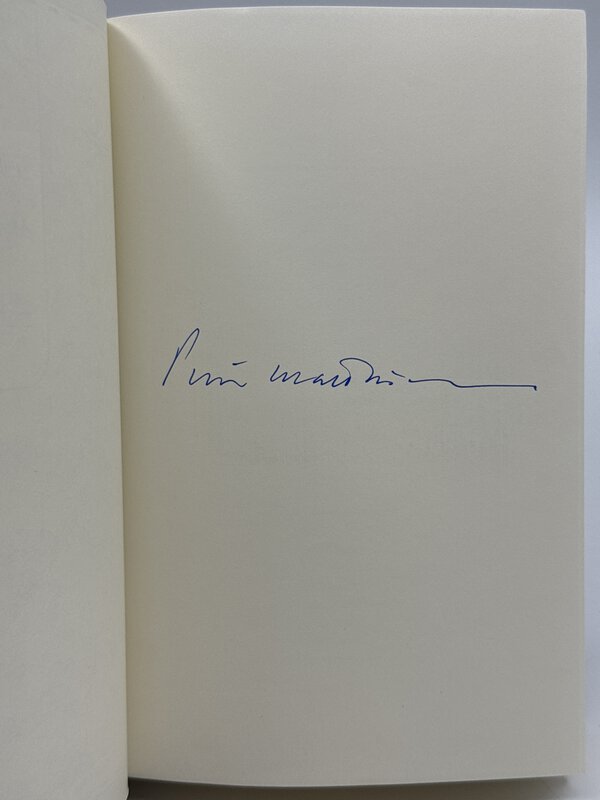 Peter Matthiessen